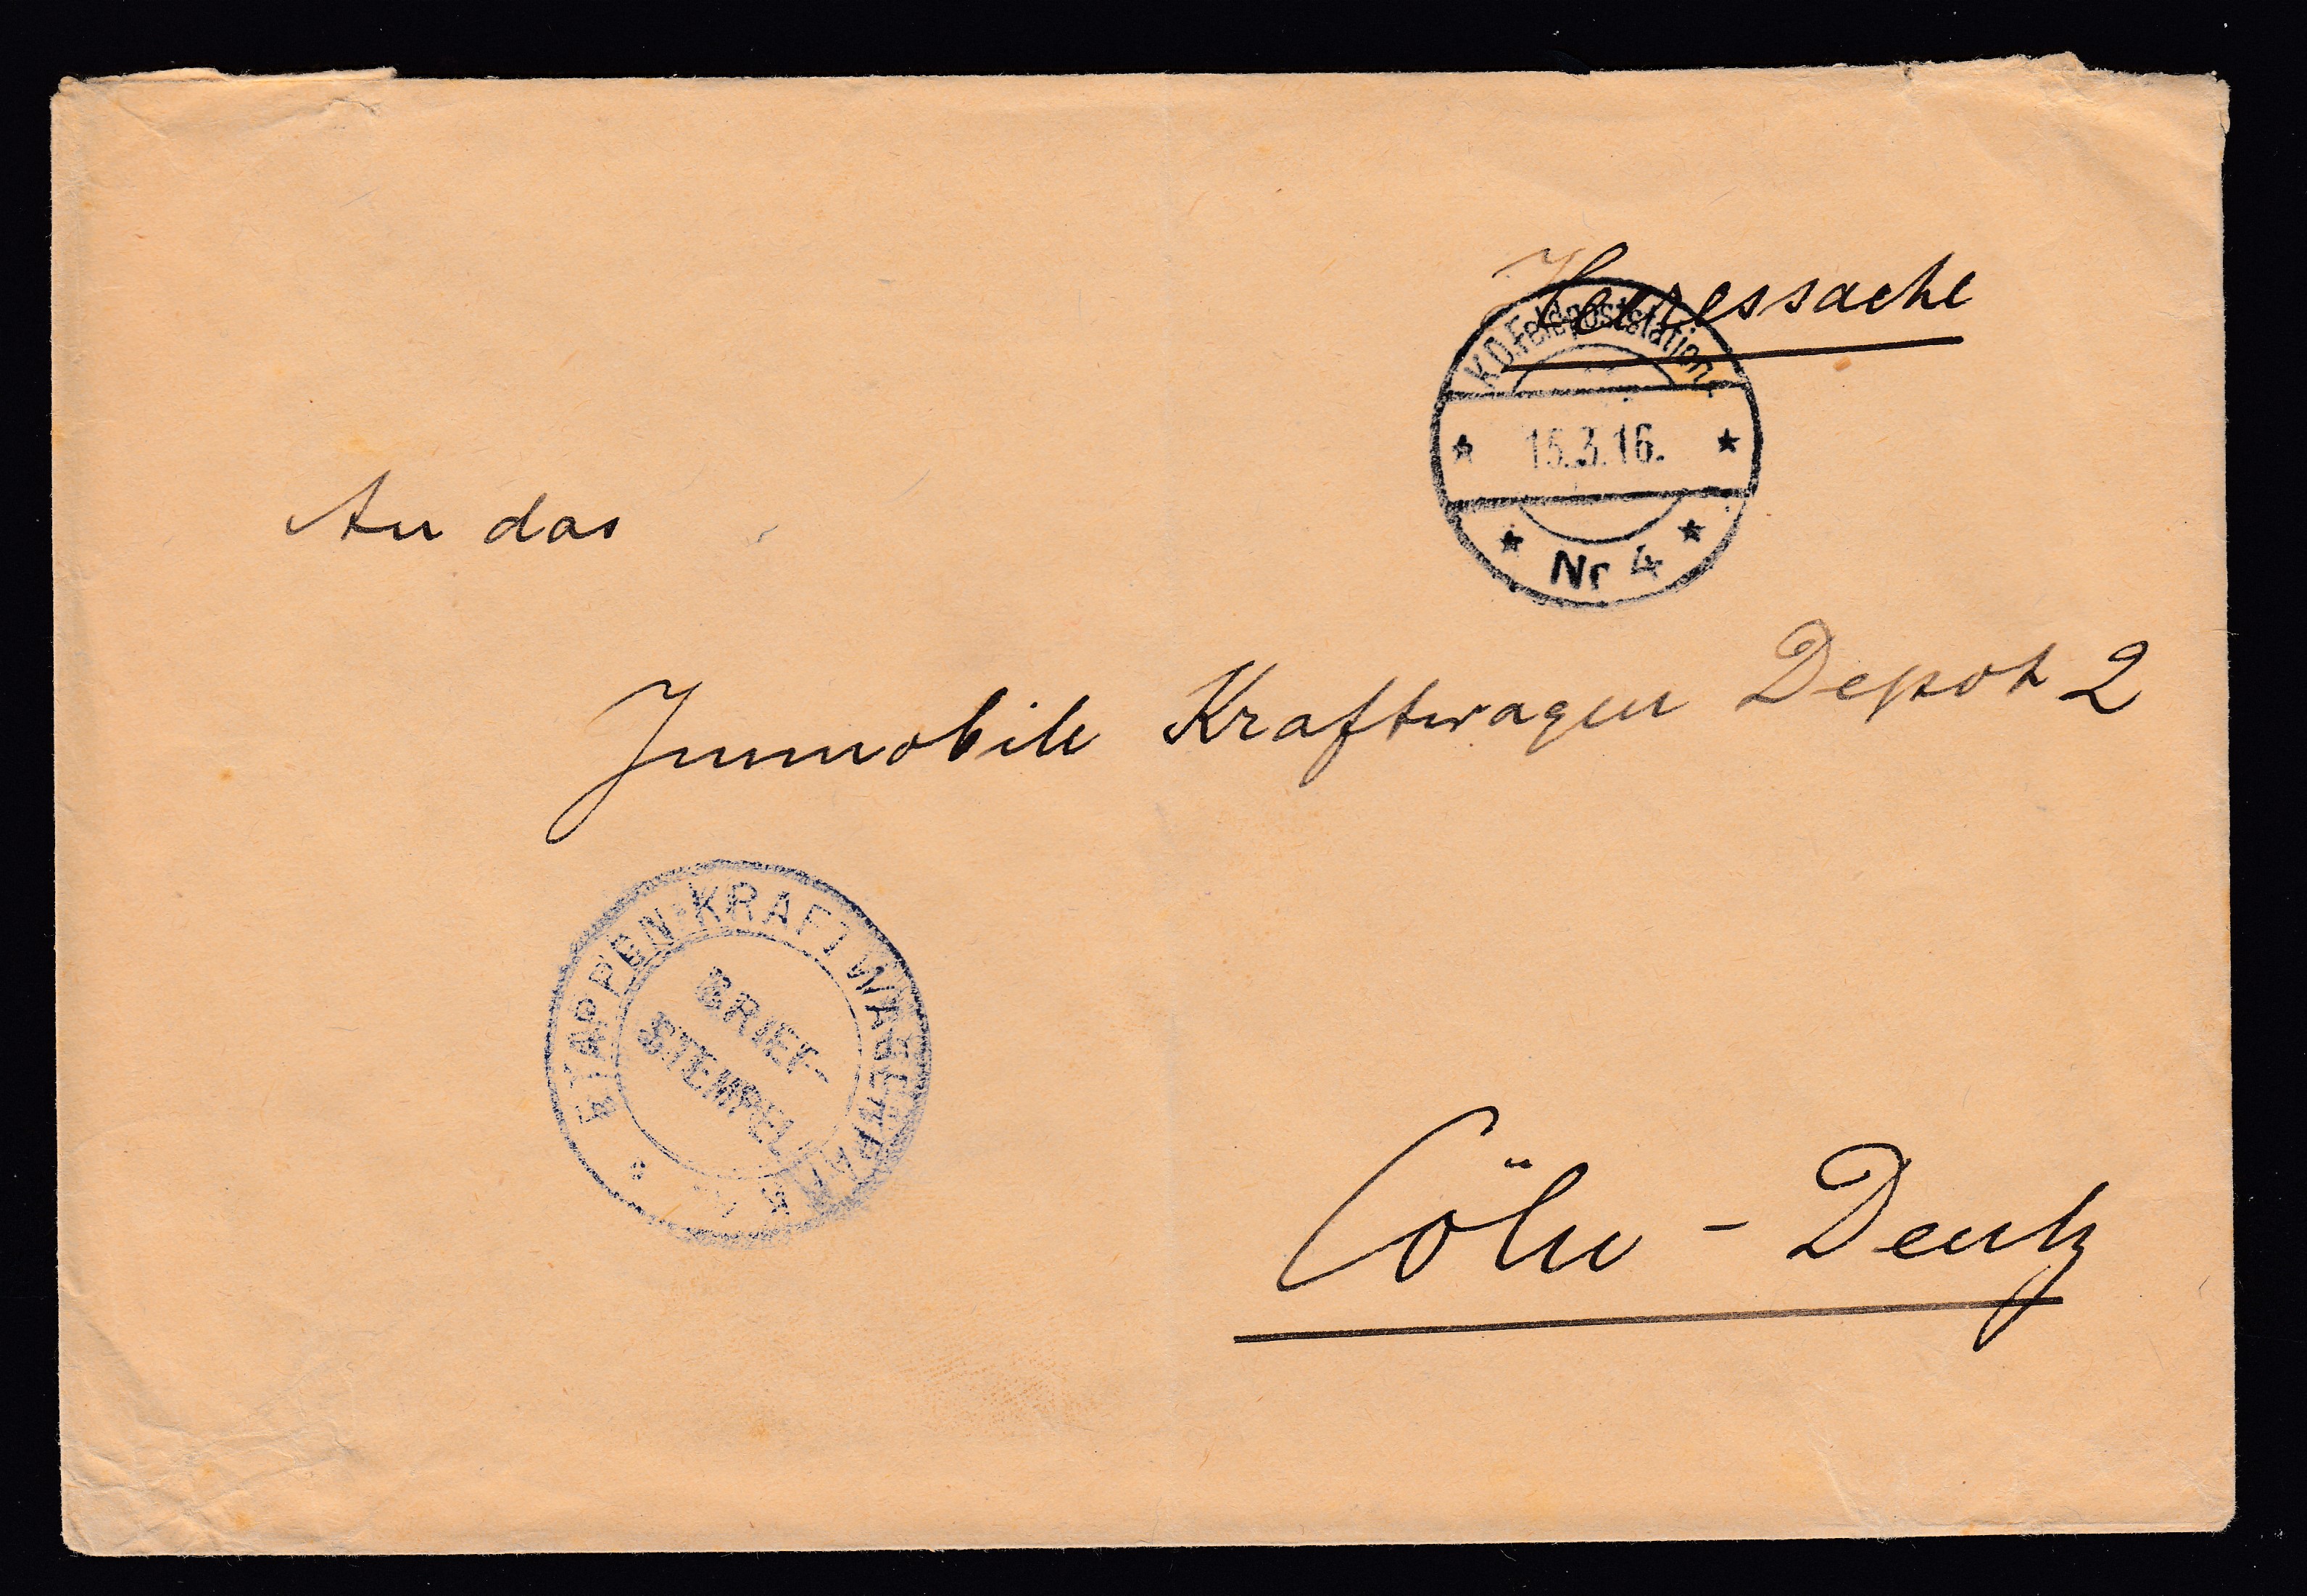 Heeressache
K.D.Feldpoststation
15.3.16.
Nr 4
An das
Immobile Kraftwagen Depot 2
ETAPPEN-KRAFTWAGENPARK
BRIEF-
STEMPEL
Cöln - Deutz